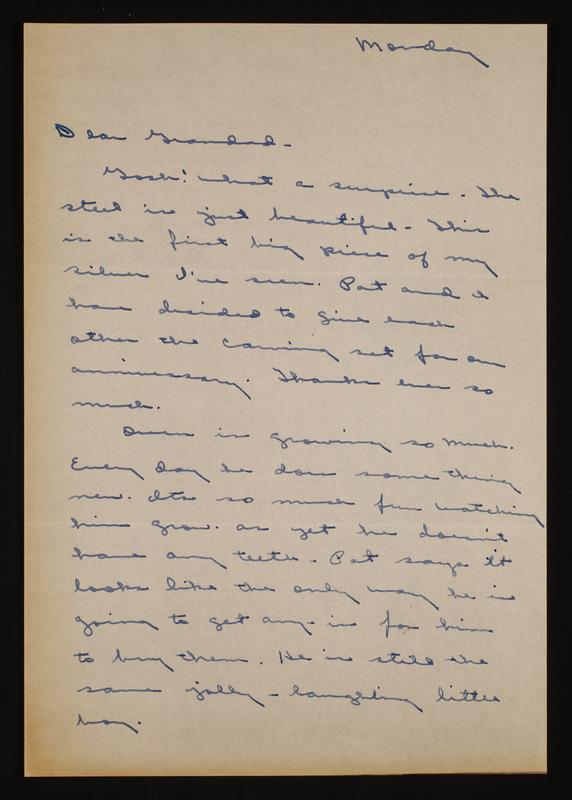 Monday
Dear Grandad -
Gosh! what a surprise. The
steel is just beautiful - This
is the first big piece of my
silver I've seen. Pat and I
have decided to give each
other the carving set for our
anniversary. Thanks ever so
much.
Owen is growing so much.
Every day he does something
new. Its so much fun watching
him grow. as yet he doesn't
have any teeth. Pat says it
looks like the only way he is
going to get any - is for him
to buy them. He is still the
same jolly - laughing little
boy.